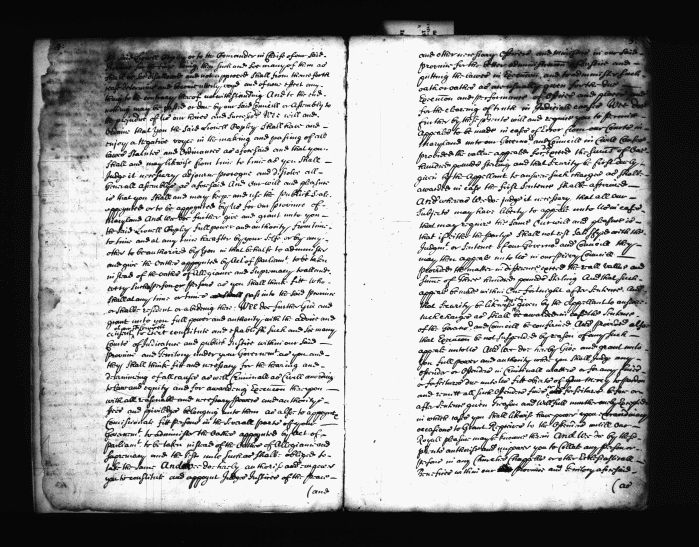 said Lionell Copley or to the Comander in Cheife of our said
shall be disallowed and not approved shall from thence forth
cease determine and become utterly void and of none effect any
thing to the contrary thereof notwithstanding And to the end
nothing may be passed or done by our said Councill or Assembly to
the prejudice of us our heires and Successors Wee will and
ordaine that you the said Lionell Copley shall have and
enjoy a Negative voyce in the making and passing of all
Lawes Statutes and Ordinances as aforesaid and that you
shall and may likewise from time to time as you shall
Judge it necessary adjourne prorogue and dissolve all
Generall Assemblyes as aforesaid And our will and pleasure
is that you shall and may keepe and use the publick Seal
appointed or to be appointed by us for our Province of
Maryland And wee do further give and grant unto you
the said Lionell Copley full power and authority from time
to time and at any time hereafter by your selfe or by any
other to be authorized by you in that behalf to administer
and give the Oathes appointed by Act of Parliamt to be taken
instead of the Oathes of Allegiance and Supremacy to all and
every such person or persons as you shall think fitt who
shall at any time or times pass into the said Province
or shall be resident or abideing there. Wee doe further Give and
grant unto you full power and authority with the advice and
consent to Erect constitute and establish such and so many
Courts of Judicature and publick Justice within our said
Province and Territory under your Governmt as you and
they shall think fitt and necessary for the hearing and
determining of all causes as well Criminall as Civill according
to Law and equity and for awarding Execution thereupon
with all reasonable and necessary powers and authorityes
fees and priviledges belonging unto them as also to appoint
Commissionate fitt persons in the severall parts of your
Governmt to administer the Oathes appointed by Act of
Parliamt to be taken instead of the Oathes of Allegiance and
Supremacy and the Test unto such as shall be obliged to
take the same And wee doe hereby authorise and impower
you to constitute and appoint Judges Justices of the peace
(and
and other necessary Officers and Ministers in our said
Province for the better administration of Justice and
putting the Lawes in Execution, and to administer such
oath or oathes as are usually given for the due
Execution and performance of offices and places and
for the clearing of truth in Judiciall causes Wee doe
further by these presents will and require you to permitt
Appeales to be made in cases of Error from our Courts in
Maryland unto our Governr and Councill in Civill Causes
provided the value appealed for exceed the summe of One
hundred pounds sterling and that Security be first duely
given by the Appellant to answer such charges as shall
awarded in case the first Sentence shall be affirmed
And whereas wee doe judge it necessary that all our
Subjects may have liberty to appeale unto us in cases
that may require the same Our will and pleasure is
that if either the partys shall not rest satisfyed with the
Judgmt or Sentence of our Governr and Councill they
may then appeale unto us in our privy Councill
provided the matter in difference exceed the reall value and
summe of three hundred pounds sterling And that such
appeale be made within One fortnight after Sentence And
that Security be likewise given by the Appellant to answer
such charges as shall be awarded in case the Sentence
of the Governr and Councill be confirmed And provided also
that Execution be not suspended by reason of any such
appeale unto us And wee doe hereby Give and grant unto
you full power and authority where you shall judge any
offender or offenders in Criminall matters or for any fines
or forfeitures due unto us fitt objects of Our mercy to pardon
and remitt all such Offenders fines and forfeitures before or
after sentence given Treason and Willfull murther only Excepted
in which cases you shall likewise have power upon Extraordinary
occasions to Grant Reprieves to the Offenders untill our
Royall pleasure may be knowne therein And Wee do by these
presents authorise and impower you to Collate any person or
persons in any Churches Chappells or other Ecclesiasticall
Benefices within our said Province and Territory aforesaid
(as